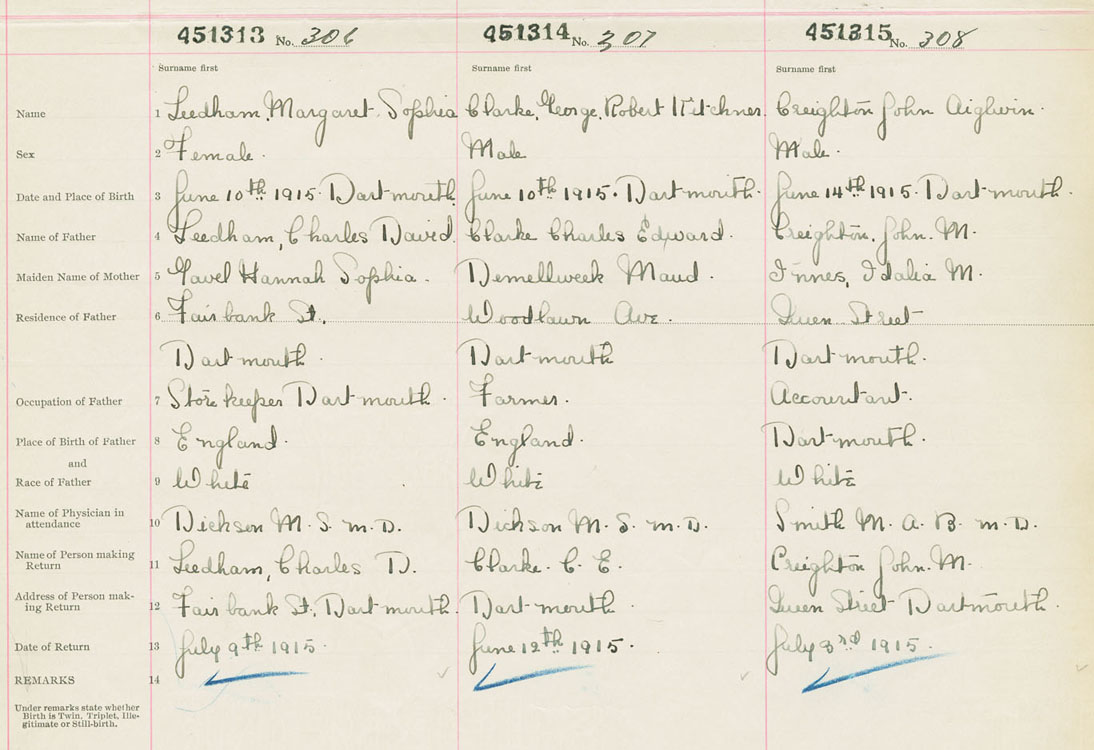 451313 No. 306 451314 No. 307 451315 No. 308
Surname first Surname first Surname first
Name 1 Leedham, Margaret Sophia Clarke, George, Robert Kitchner. Creighton John Aiglwin.
Sex 2 Female. Male Male.
Date and Place of Birth 3 June 10th 1915. Dartmouth June 10th 1915. Dartmouth. June 14th 1915. Dartmouth.
Name of Father 4 Leedham, Charles David. Clarke Charles Edward. Creighton, John. M.
Maiden Name of Mother 5 Gavel Hannah Sophia. Demellweek Maud. Innes, Idalia M.
Residence of Father 6 Fairbank St. Woodlawn Ave. Queen Street
Dartmouth. Dartmouth Dartmouth.
Occupation of Father 7 Store keeper Dartmouth. Farmer. Accountant.
Place of Birth of Father 8 England. England. Dartmouth.
and
Race of Father 9 White White White
Name of Physician in
attendance 10 Dickson M. S. M.D. Dickson M. S. M.D. Smith M. A. B. M.D.
Name of Person making
Return 11 Leedham, Charles D. Clarke. C. E. Creighton John. M.
Address of Person mak-
ing Return 12 Fairbank St. Dartmouth. Dartmouth. Queen Street Dartmouth.
Date of Return 13 July 9th 1915. June 12th 1915. July 3rd 1915.
REMARKS 14
Under remarks state whether
Birth is Twin, Triplet, Ille-
gitimate or Still-birth.